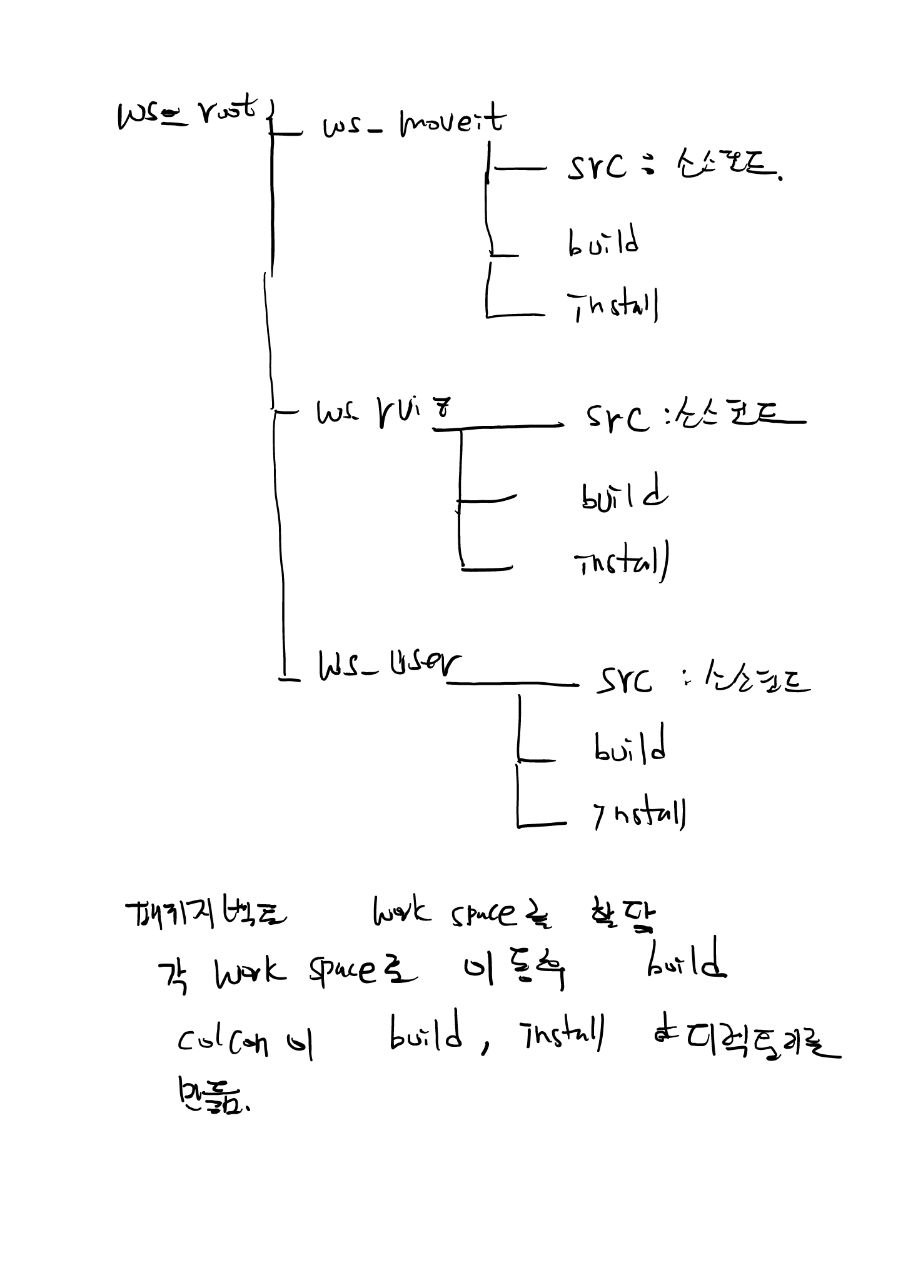 ws_root
ws_moveit
src : 소스코드.
build
install
ws_rviz
src : 소스코드
build
install
ws_user
src : 소스코드
build
install
패키지별로 work space를 할당
각 work space로 이동후 build
colcon이 build, install 디렉토리를
만듦.